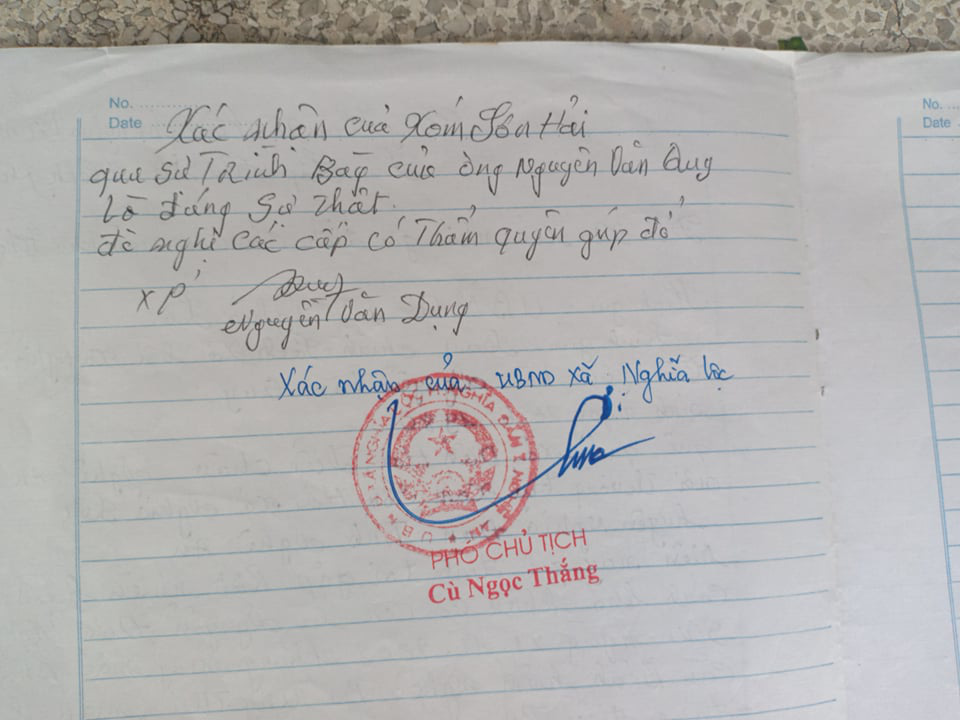 No. ............
Date ............
Xác nhận của Xóm Sơn Hải
qua sự Trình Bày của ông Nguyễn Văn Quy
Là đúng Sự Thật.
đề nghị các cấp có Thẩm quyền giúp đỡ
XP
Nguyễn Văn Dụng
Xác nhận của UBND xã Nghĩa Lộc
U.B.N.D XÃ NGHĨA LỘC H. NGHĨA ĐÀN T. NGHỆ AN
PHÓ CHỦ TỊCH
Cù Ngọc Thắng
No.
Date